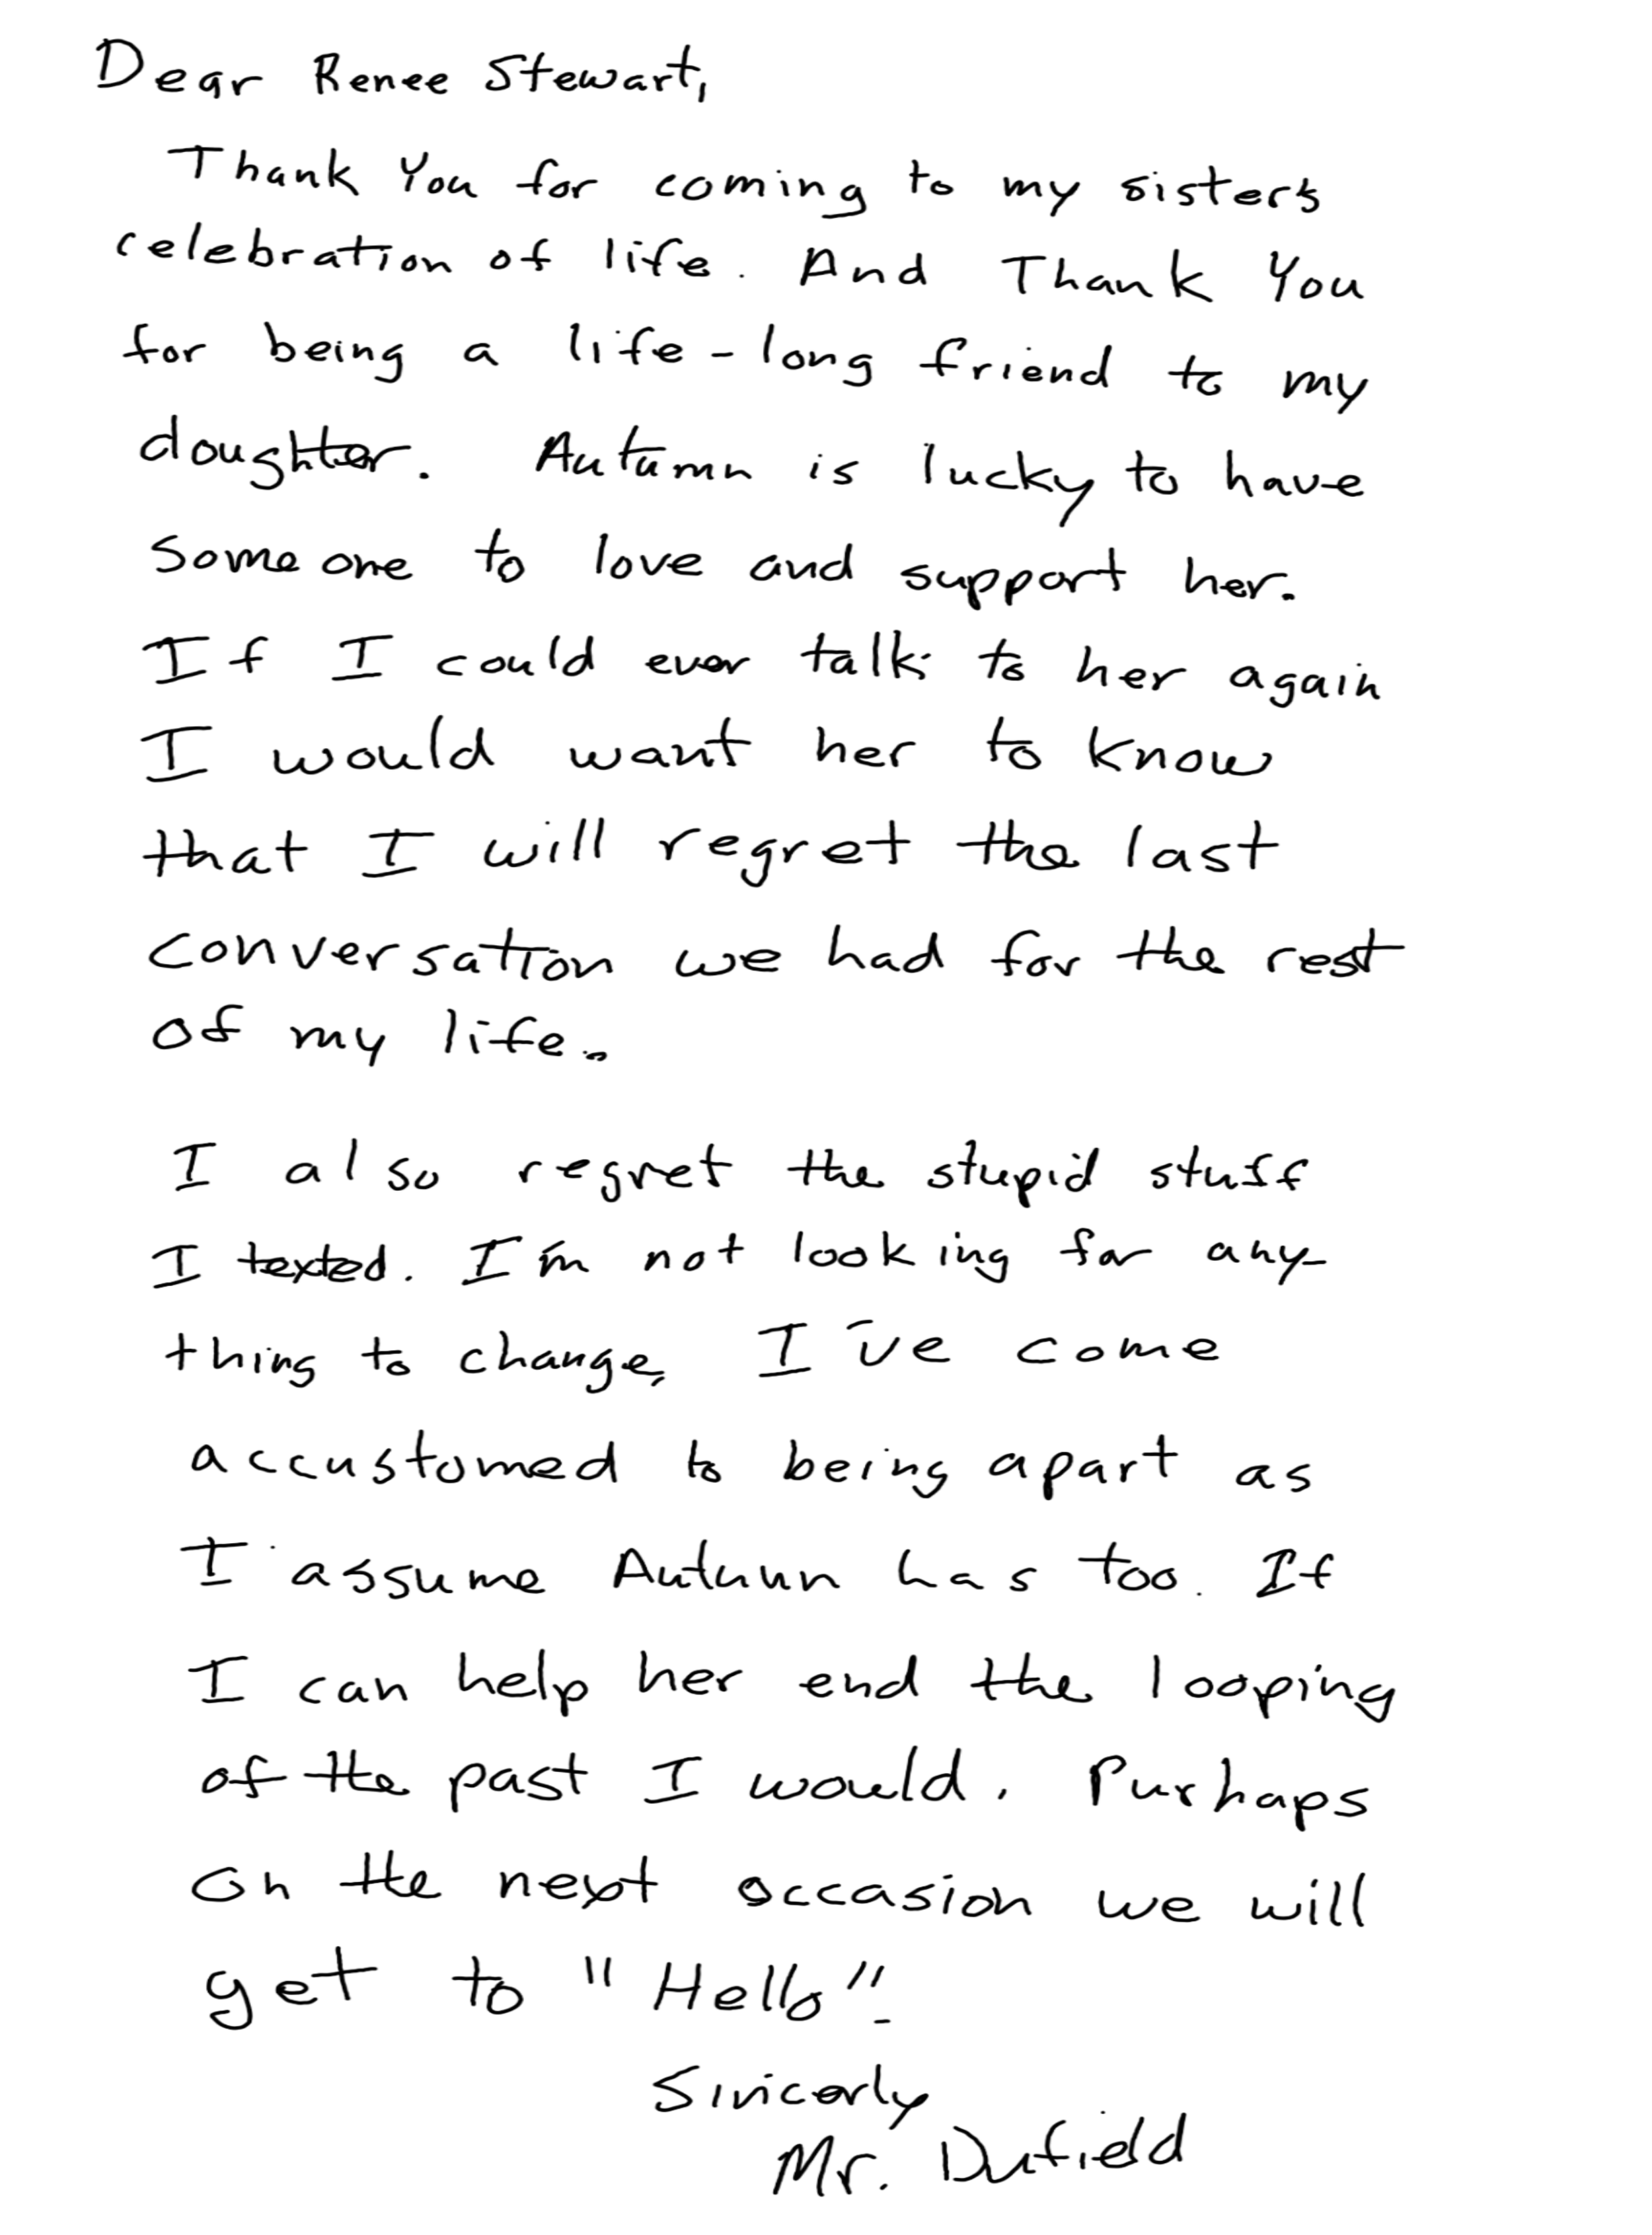 Dear Renee Stewart,
Thank You for coming to my sisters
celebration of life. And Thank You
for being a life-long friend to my
doughter. Autumn is lucky to have
someone to love and support her.
If I could ever talk to her again
I would want her to know
that I will regret the last
conversation we had for the rest
of my life.
I also regret the stupid stuff
I texted. I'm not looking for any-
thing to change, I've come
accustomed to being apart as
I assume Autumn has too. If
I can help her end the looping
of the past I would. Purhaps
on the next occasion we will
get to "Hello".
Sincerly
Mr. Dufield